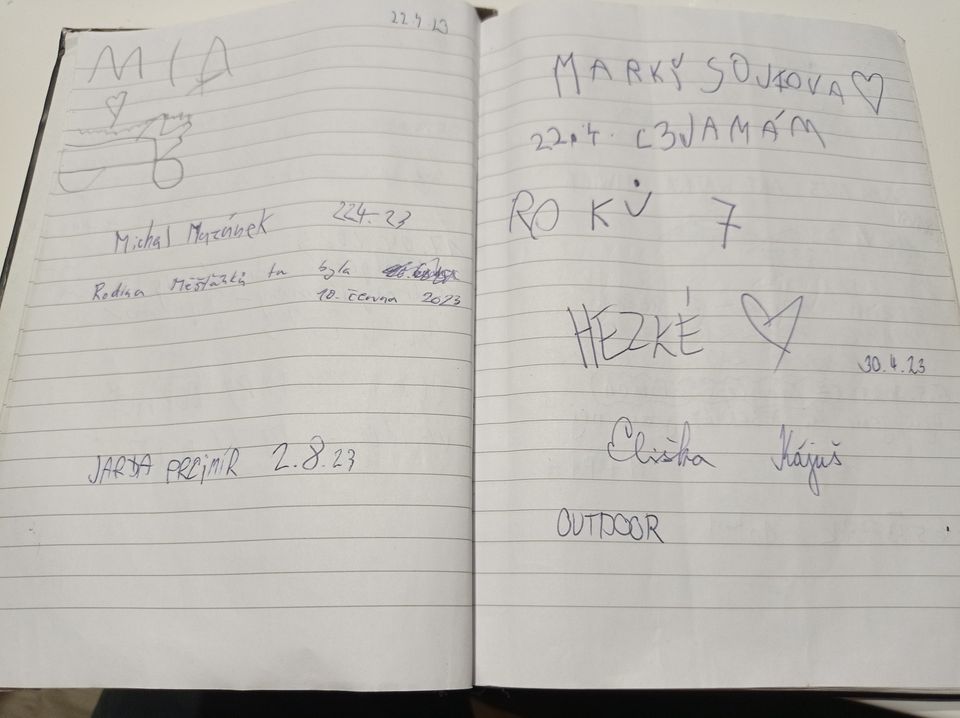 22.4 23
MIA
Michal 224.23
Rodina tu byla
18. června 2023
JARDA PREJMÍR 2.8.23
MARKÝ SOJKOVA
22.4. 23 JAMÁM
ROKŮ 7
HEZKÉ
30.4.23
Eliška Kájuš
OUTDOOR